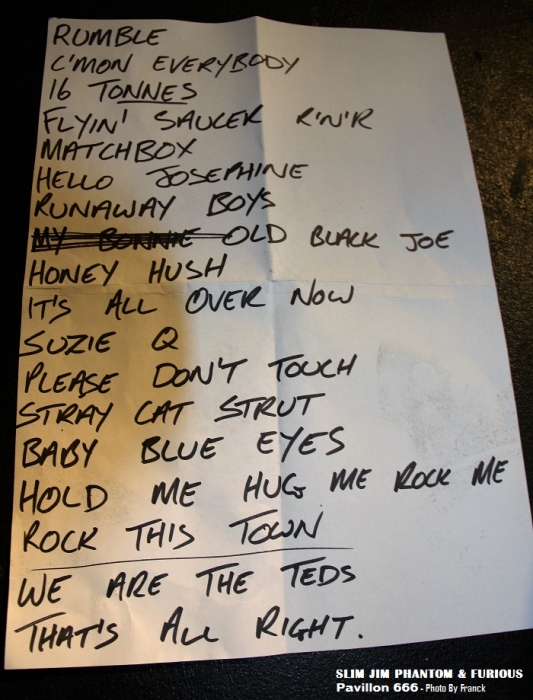 RUMBLE
C'MON EVERYBODY
16 TONNES
FLYIN' SAUCER R'N'R
MATCHBOX
HELLO JOSEPHINE
RUNAWAY BOYS
MY BONNIE OLD BLACK JOE
HONEY HUSH
IT'S ALL OVER NOW
SUZIE Q
PLEASE DON'T TOUCH
STRAY CAT STRUT
BABY BLUE EYES
HOLD ME HUG ME ROCK ME
ROCK THIS TOWN
WE ARE THE TEDS
THAT'S ALL RIGHT.
SLIM JIM PHANTOM & FURIOUS
Pavillon 666 - Photo By Franck